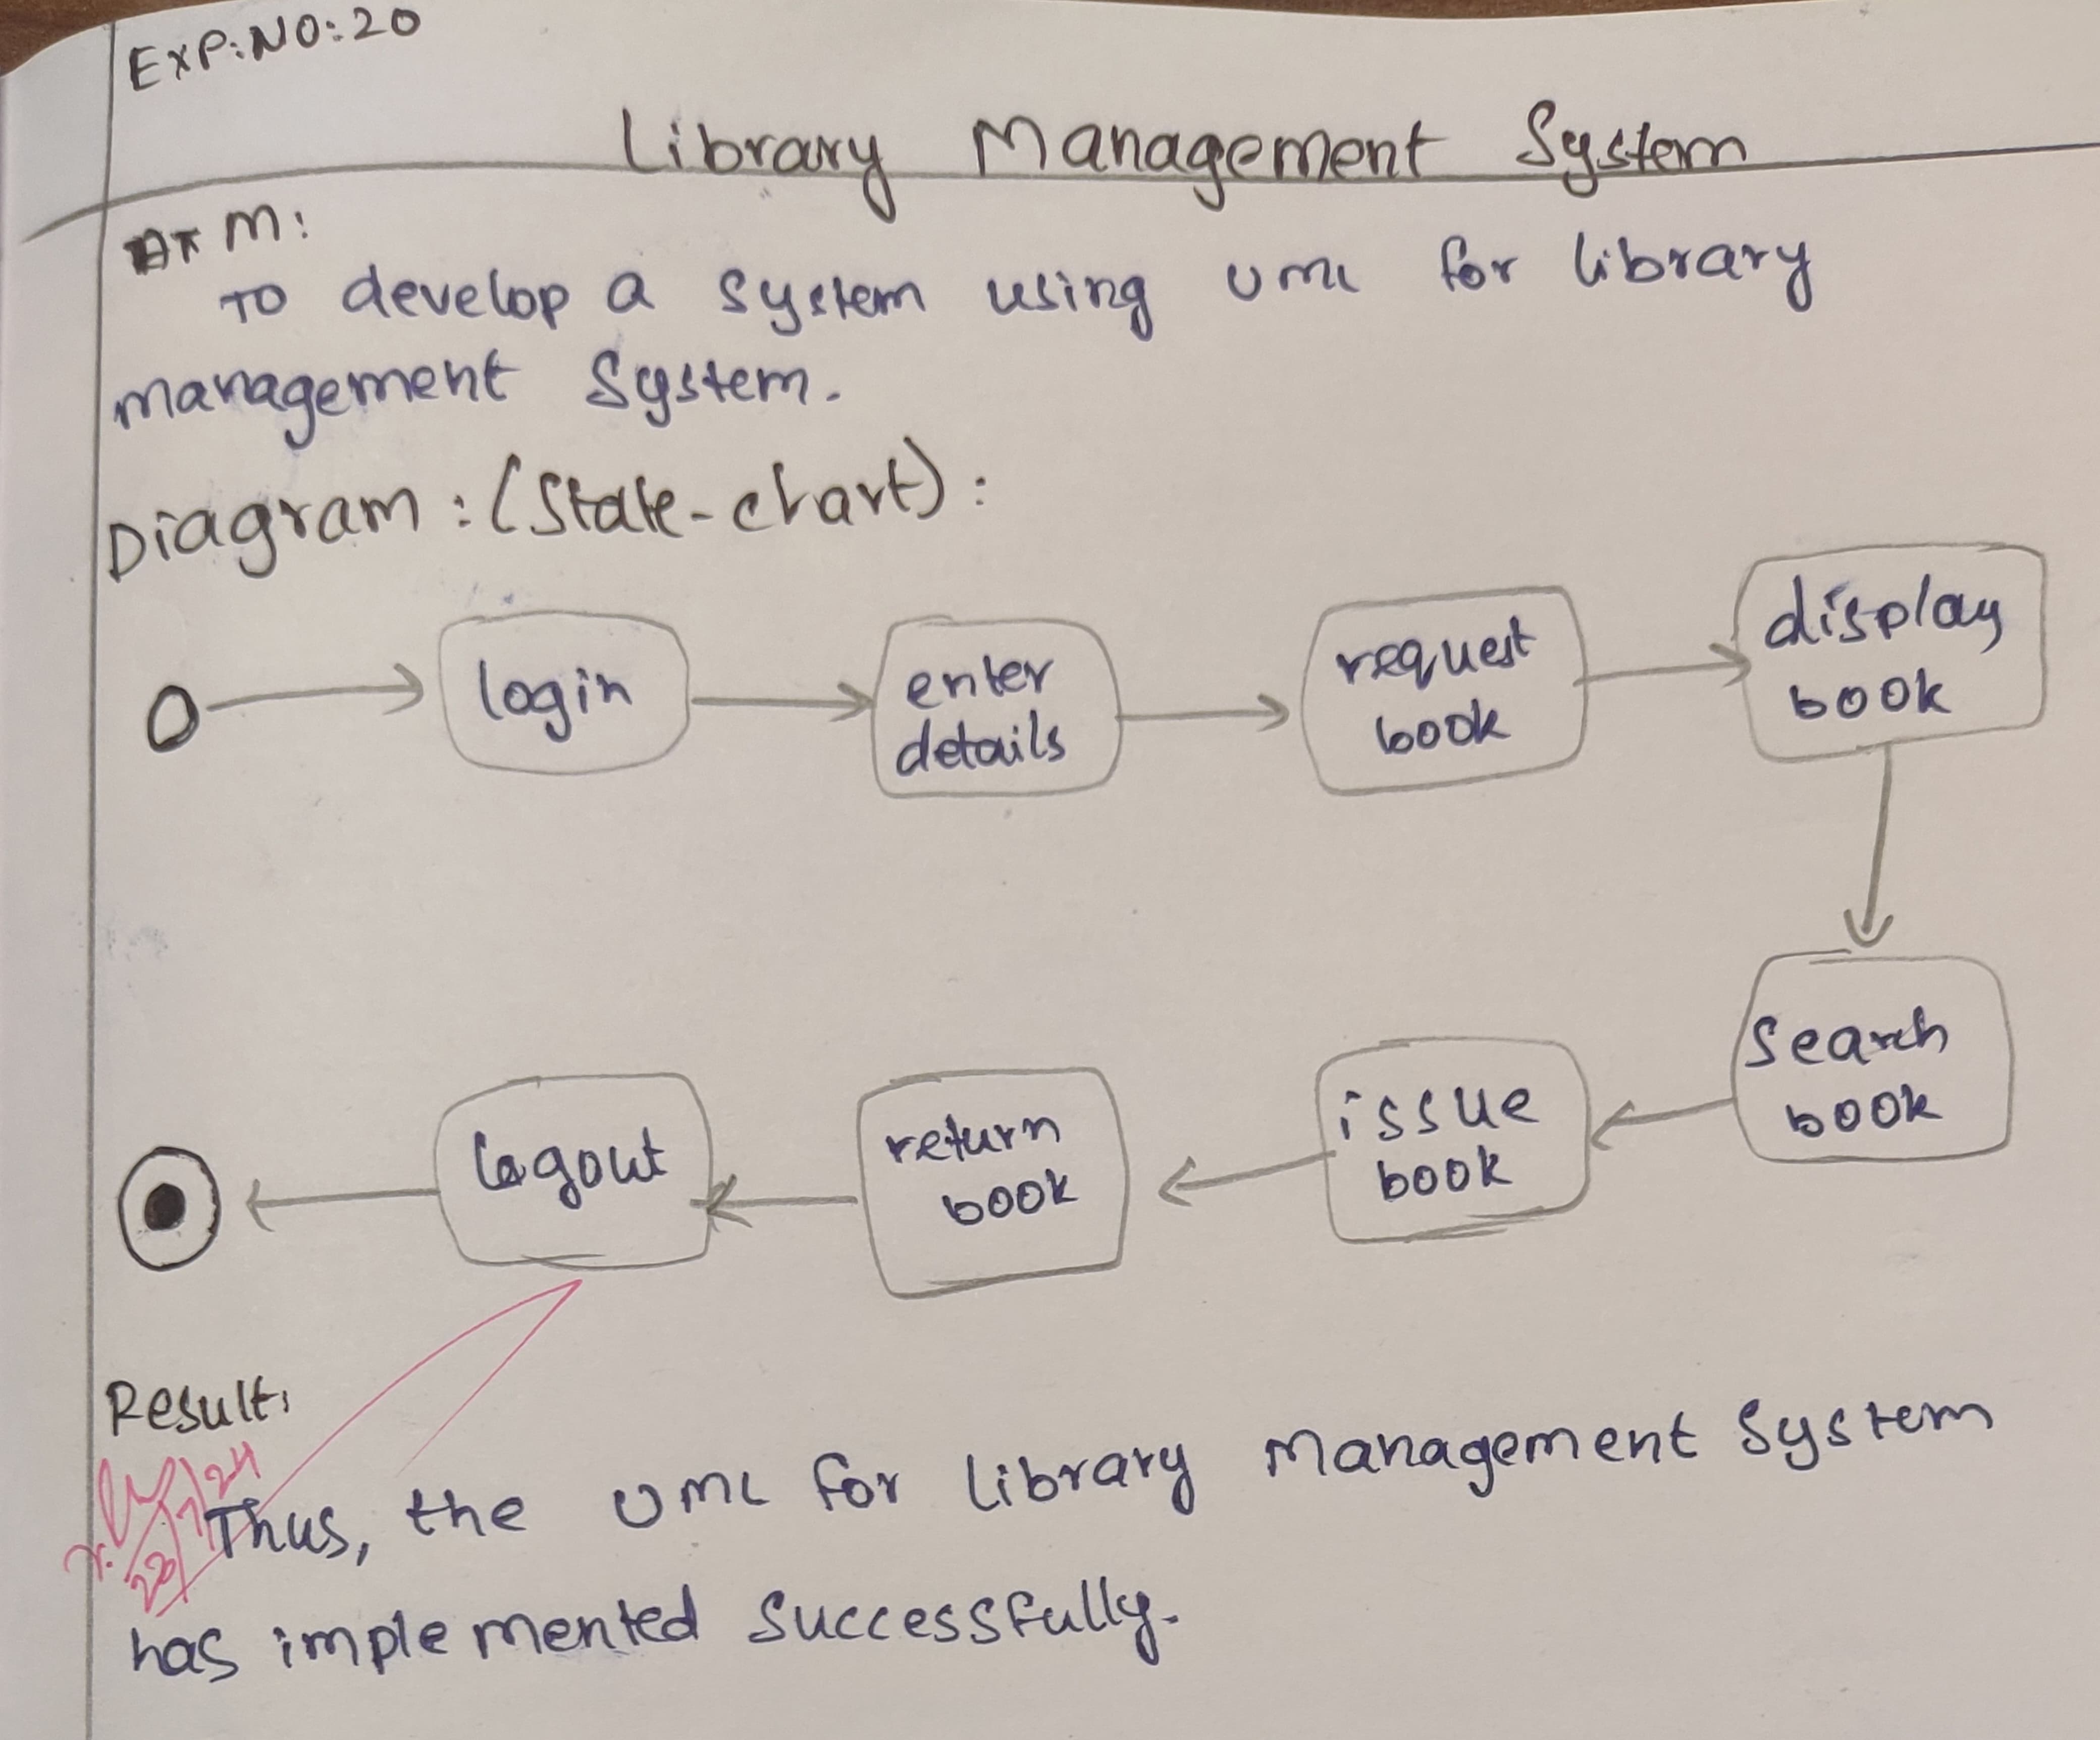 EXP:NO:20
Library Management System
AIM:
TO develop a system using UML for library
management System.
Diagram : (State-chart) :
login
enter
details
request
book
display
book
search
book
issue
book
return
book
logout
Result:
Thus, the UML for library management System
has implemented successfully.